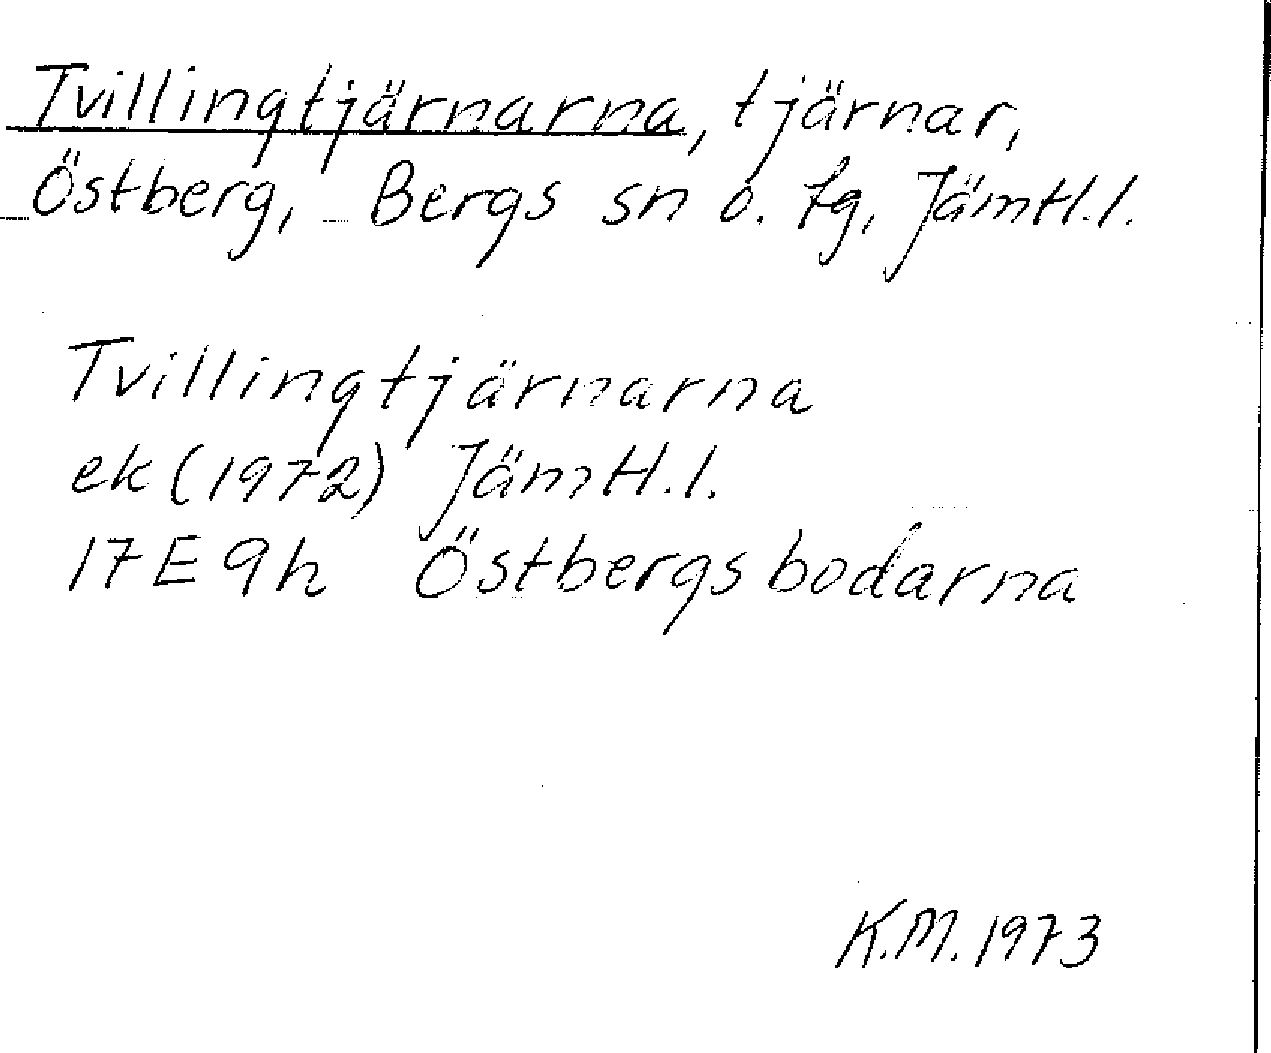 Tvillingtjärnarna, tjärnar,
Östberg, Bergs sn o. tg, Jämtl.l.
Tvillingtjärnarna
ek (1972) Jämtl.l.
17E 9h Östbergsbodarna
K.M. 1973